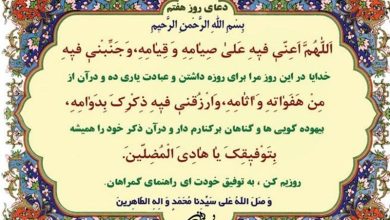 دعای روز هفتم
بِسْمِ اللهِ الرَّحْمنِ الرَّحیمِ
اَللّهُمَّ اَعِنّی فیهِ عَلی صِیامِهِ وَ قِیامِهِ، وَ جَنِّبْنی فیهِ
خدایا در این روز مرا برای روزه داشتن و عبادت یاری ده و درآن از
مِنْ هَفَواتِهِ وَ اثامِهِ، وَارْزُقْنی فیهِ ذِکْرَکَ بِدَوامِهِ،
بیهوده گویی ها و گناهان برکنارم دار و درآن ذکر خود را همیشه
بِتَوْفیقِکَ یا هادِیَ الْمُضِلّینَ.
روزیم کن ، به توفیق خودت ای راهنمای گمراهان.
وَ صَلَّ اللهُ عَلی سَیِّدِنا مُحَمَّدٍ وَ الِهِ الطّاهِرینَ